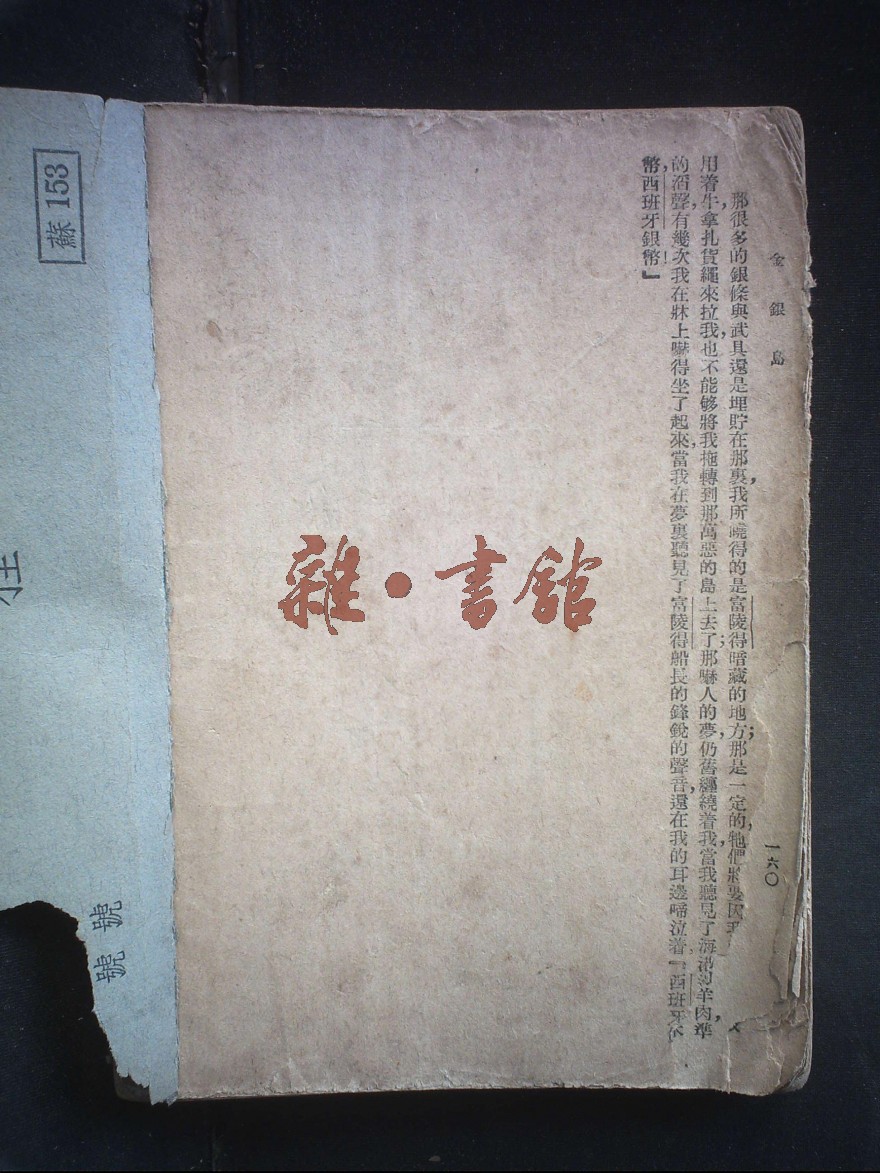 金銀島
一六〇
那很多的銀條與武具,還是埋貯在那裏,我所曉得的是富陵得暗藏的地方;那是一定的,牠們將要因
用着牛,拿扎貨繩來拉我,也不能够將我拖轉到那萬惡的島上去了;那嚇人的夢,仍舊纏繞着我,當我聽見了海沿羊肉準
的滔聲,有幾次我在牀上嚇得坐了起來,當我在夢裏聽見了富陵得船長的鋒銳的聲音,還在我的耳邊啼泣着『西班牙
幣,西班牙銀幣!』
雜·書館
蘇 153
號
號